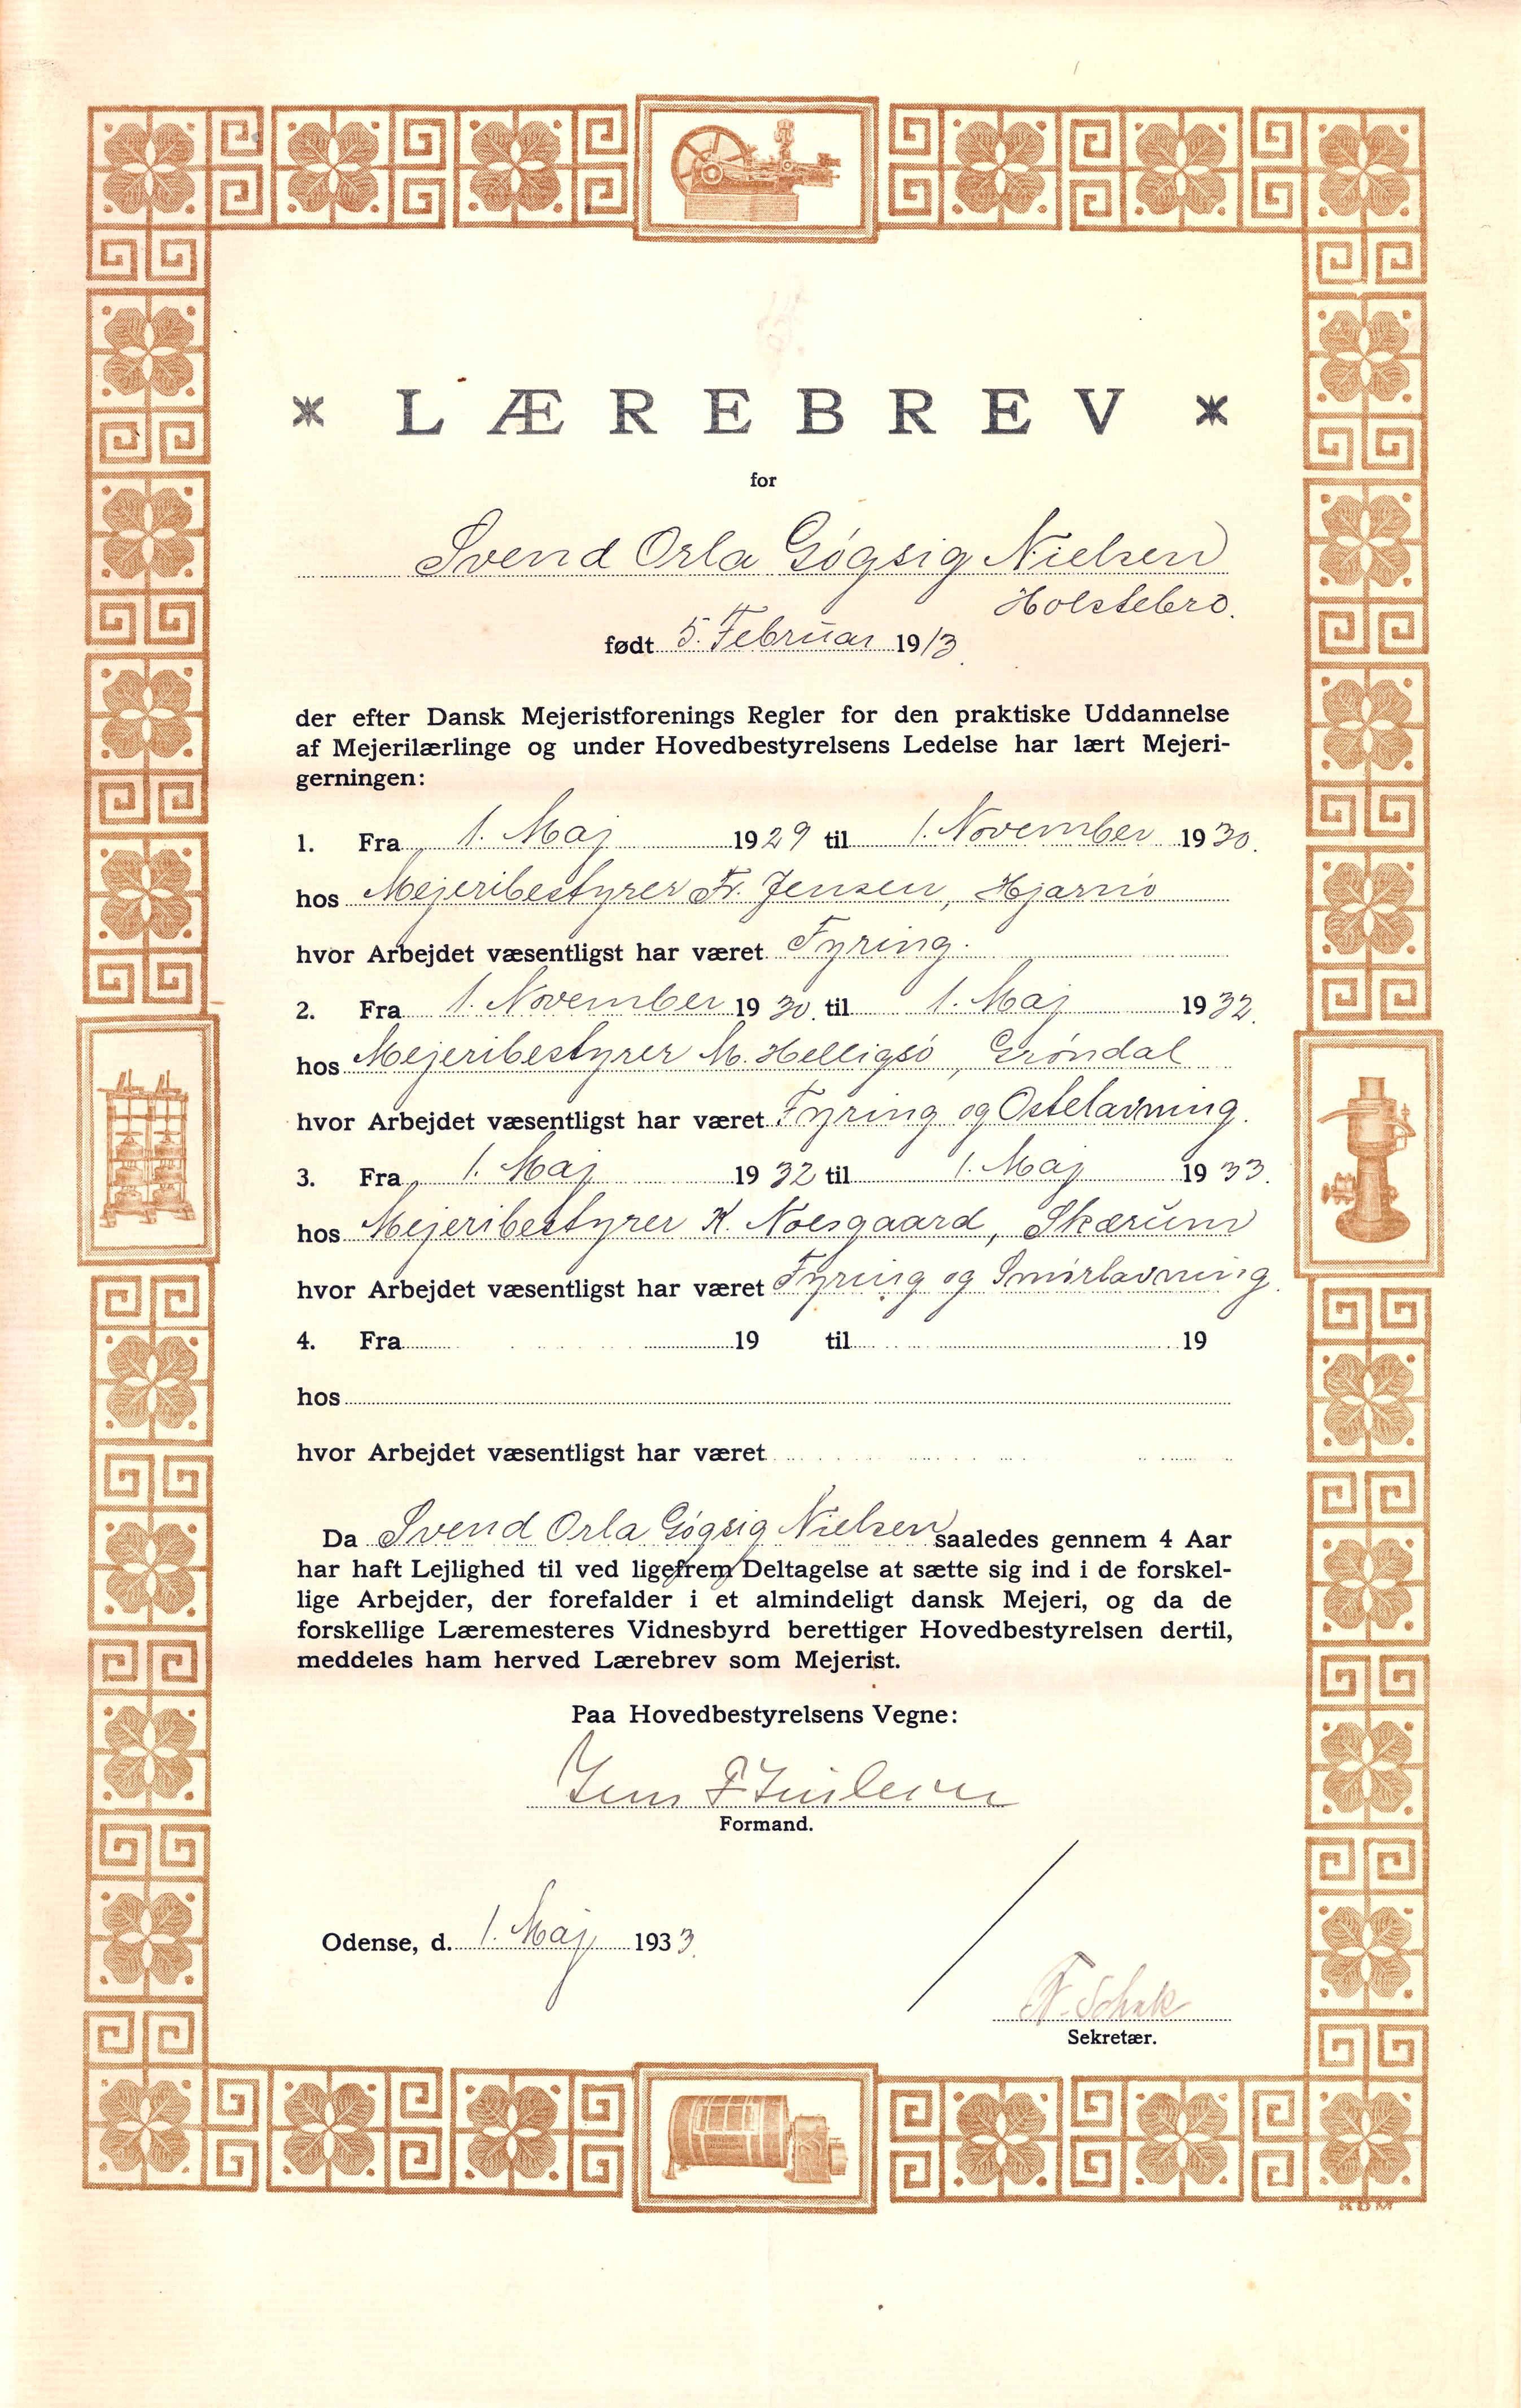 * LÆREBREV *
for
Svend Orla Gøgsig Nielsen
Holstebro.
født 5. Februar 1913.
der efter Dansk Mejeristforenings Regler for den praktiske Uddannelse
af Mejerilærlinge og under Hovedbestyrelsens Ledelse har lært Mejeri-
gerningen:
1. Fra 1. Maj 1929 til 1. November 1930.
hos Mejeribestyrer Fr. Jensen, Hjarnø
hvor Arbejdet væsentligst har været Fyring.
2. Fra 1. November 1930. til 1. Maj 1932.
hos Mejeribestyrer M. Helligsö, Grøndal
hvor Arbejdet væsentligst har været Fyring og Ostelavning.
3. Fra 1. Maj 1932 til 1. Maj 1933.
hos Mejeribestyrer K. Noesgaard, Skærum
hvor Arbejdet væsentligst har været Fyring og Smörlavning.
4. Fra 19 til 19
hos
hvor Arbejdet væsentligst har været
Da Svend Orla Gøgsig Nielsen saaledes gennem 4 Aar
har haft Lejlighed til ved ligefrem Deltagelse at sætte sig ind i de forskel-
lige Arbejder, der forefalder i et almindeligt dansk Mejeri, og da de
forskellige Læremesteres Vidnesbyrd berettiger Hovedbestyrelsen dertil,
meddeles ham herved Lærebrev som Mejerist.
Paa Hovedbestyrelsens Vegne:
Formand.
Odense, d. 1. Maj 1933.
Schak
Sekretær.